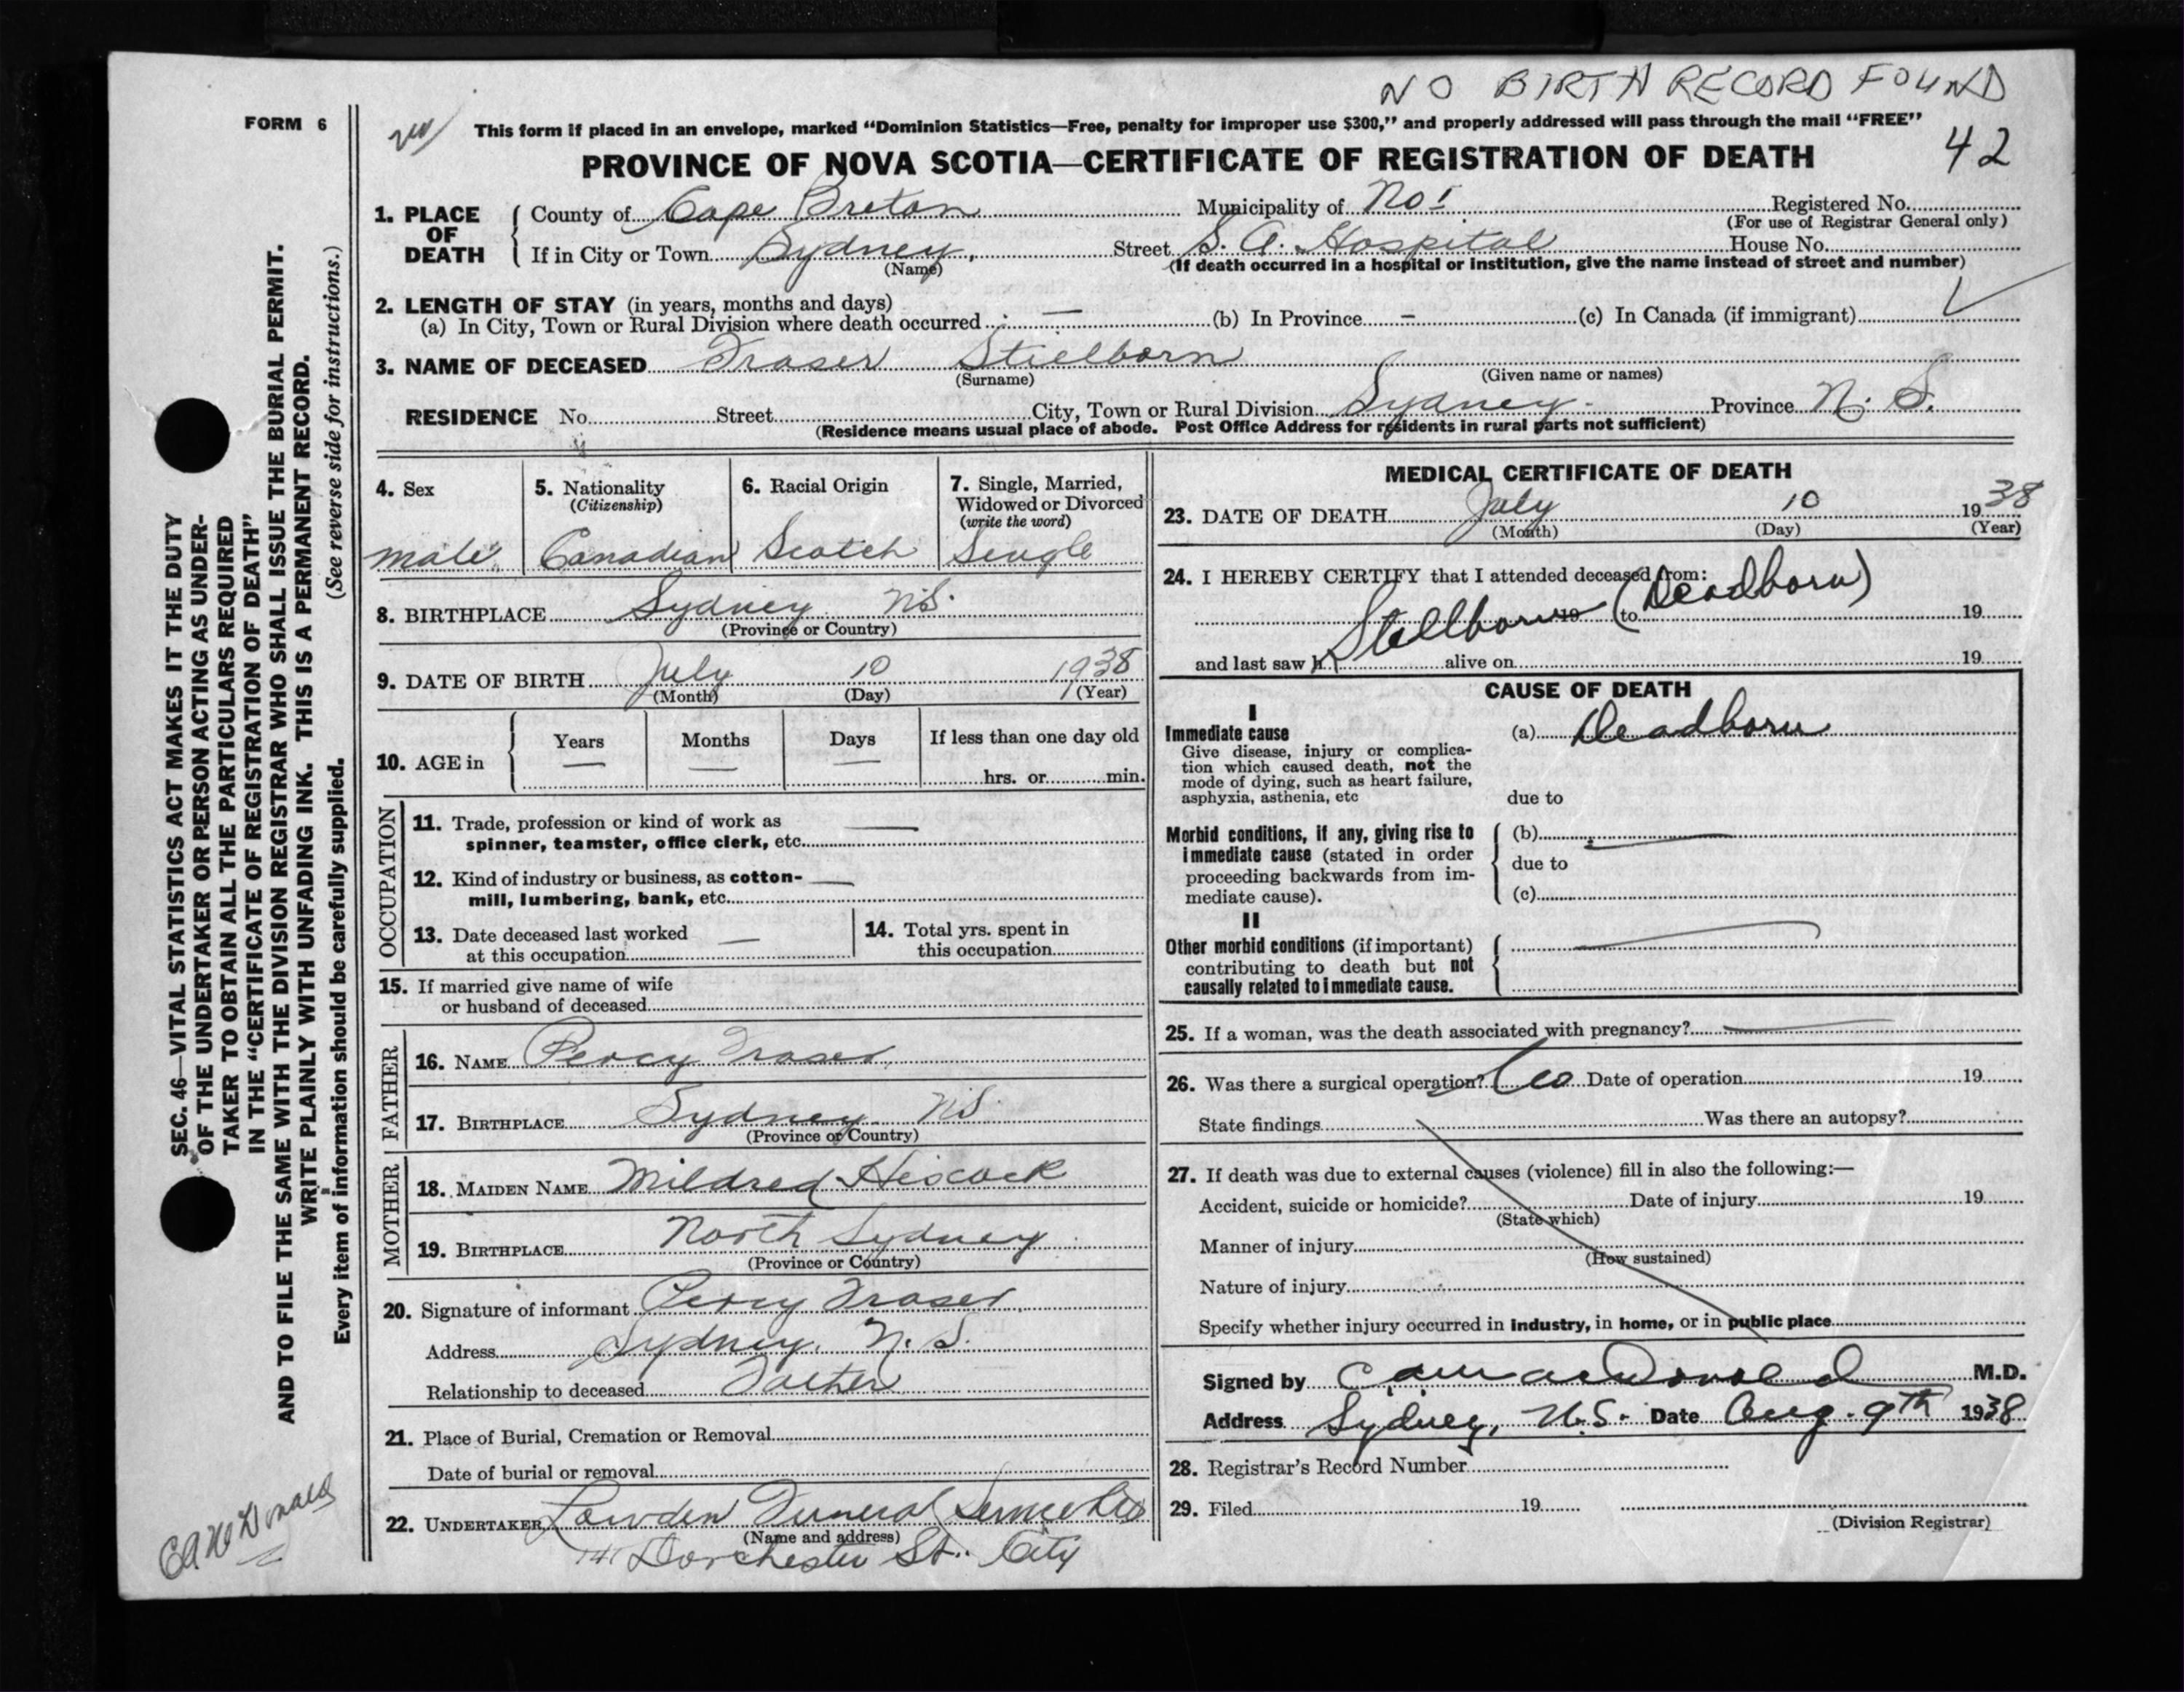 NO BIRTH RECORD FOUND
FORM 6
This form if placed in an envelope, marked “Dominion Statistics—Free, penalty for improper use $300,” and properly addressed will pass through the mail “FREE”
42
PROVINCE OF NOVA SCOTIA—CERTIFICATE OF REGISTRATION OF DEATH
SEC. 46—VITAL STATISTICS ACT MAKES IT THE DUTY
OF THE UNDERTAKER OR PERSON ACTING AS UNDER-
TAKER TO OBTAIN ALL THE PARTICULARS REQUIRED
IN THE “CERTIFICATE OF REGISTRATION OF DEATH”
AND TO FILE THE SAME WITH THE DIVISION REGISTRAR WHO SHALL ISSUE THE BURIAL PERMIT.
WRITE PLAINLY WITH UNFADING INK. THIS IS A PERMANENT RECORD.
Every item of information should be carefully supplied. (See reverse side for instructions.)
1. PLACE OF DEATH
County of Cape Breton Municipality of No 1 Registered No.
(For use of Registrar General only)
If in City or Town Sydney, Street S. A. Hospital House No.
(Name) (If death occurred in a hospital or institution, give the name instead of street and number)
2. LENGTH OF STAY (in years, months and days)
(a) In City, Town or Rural Division where death occurred — (b) In Province – (c) In Canada (if immigrant)
3. NAME OF DECEASED Fraser Stillborn
(Surname) (Given name or names)
RESIDENCE No. Street City, Town or Rural Division Sydney Province N. S.
(Residence means usual place of abode. Post Office Address for residents in rural parts not sufficient)
4. Sex
male
5. Nationality
(Citizenship)
Canadian
6. Racial Origin
Scotch
7. Single, Married,
Widowed or Divorced
(write the word)
Single
8. BIRTHPLACE Sydney N.S.
(Province or Country)
9. DATE OF BIRTH July 10 1938
(Month) (Day) (Year)
10. AGE in Years Months Days If less than one day old
— — — hrs. or min.
OCCUPATION
11. Trade, profession or kind of work as
spinner, teamster, office clerk, etc. —
12. Kind of industry or business, as cotton-
mill, lumbering, bank, etc. —
13. Date deceased last worked
at this occupation —
14. Total yrs. spent in
this occupation
15. If married give name of wife
or husband of deceased
FATHER
16. NAME Percy Fraser
17. BIRTHPLACE Sydney N.S.
(Province or Country)
MOTHER
18. MAIDEN NAME Mildred Hiscock
19. BIRTHPLACE North Sydney
(Province or Country)
20. Signature of informant Percy Fraser
Address Sydney, N. S.
Relationship to deceased Father
21. Place of Burial, Cremation or Removal
Date of burial or removal
22. UNDERTAKER Lowden Funeral Service Ltd
(Name and address)
141 Dorchester St. City
MEDICAL CERTIFICATE OF DEATH
23. DATE OF DEATH July 10 1938
(Month) (Day) (Year)
24. I HEREBY CERTIFY that I attended deceased from:
Stillborn 19 to (Deadborn) 19
and last saw h alive on 19
CAUSE OF DEATH
I
Immediate cause
Give disease, injury or complica-
tion which caused death, not the
mode of dying, such as heart failure,
asphyxia, asthenia, etc
(a) Deadborn
due to
Morbid conditions, if any, giving rise to
immediate cause (stated in order
proceeding backwards from im-
mediate cause).
(b) —
due to
(c)
II
Other morbid conditions (if important)
contributing to death but not
causally related to immediate cause.
25. If a woman, was the death associated with pregnancy? —
26. Was there a surgical operation? Date of operation 19
State findings Was there an autopsy?
27. If death was due to external causes (violence) fill in also the following:—
Accident, suicide or homicide? Date of injury 19
(State which)
Manner of injury
(How sustained)
Nature of injury
Specify whether injury occurred in industry, in home, or in public place
Signed by MacDonald M.D.
Address Sydney, N.S. Date Aug. 9th 1938
28. Registrar's Record Number
29. Filed 19
(Division Registrar)